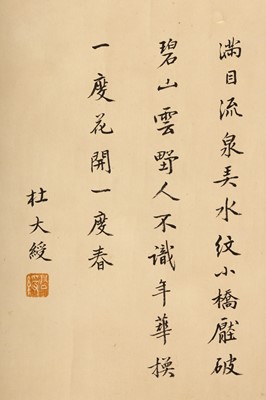 滿目流泉美水紋小橋壓破
碧山雲野人不識年華換
一度花開一度春
杜大綬